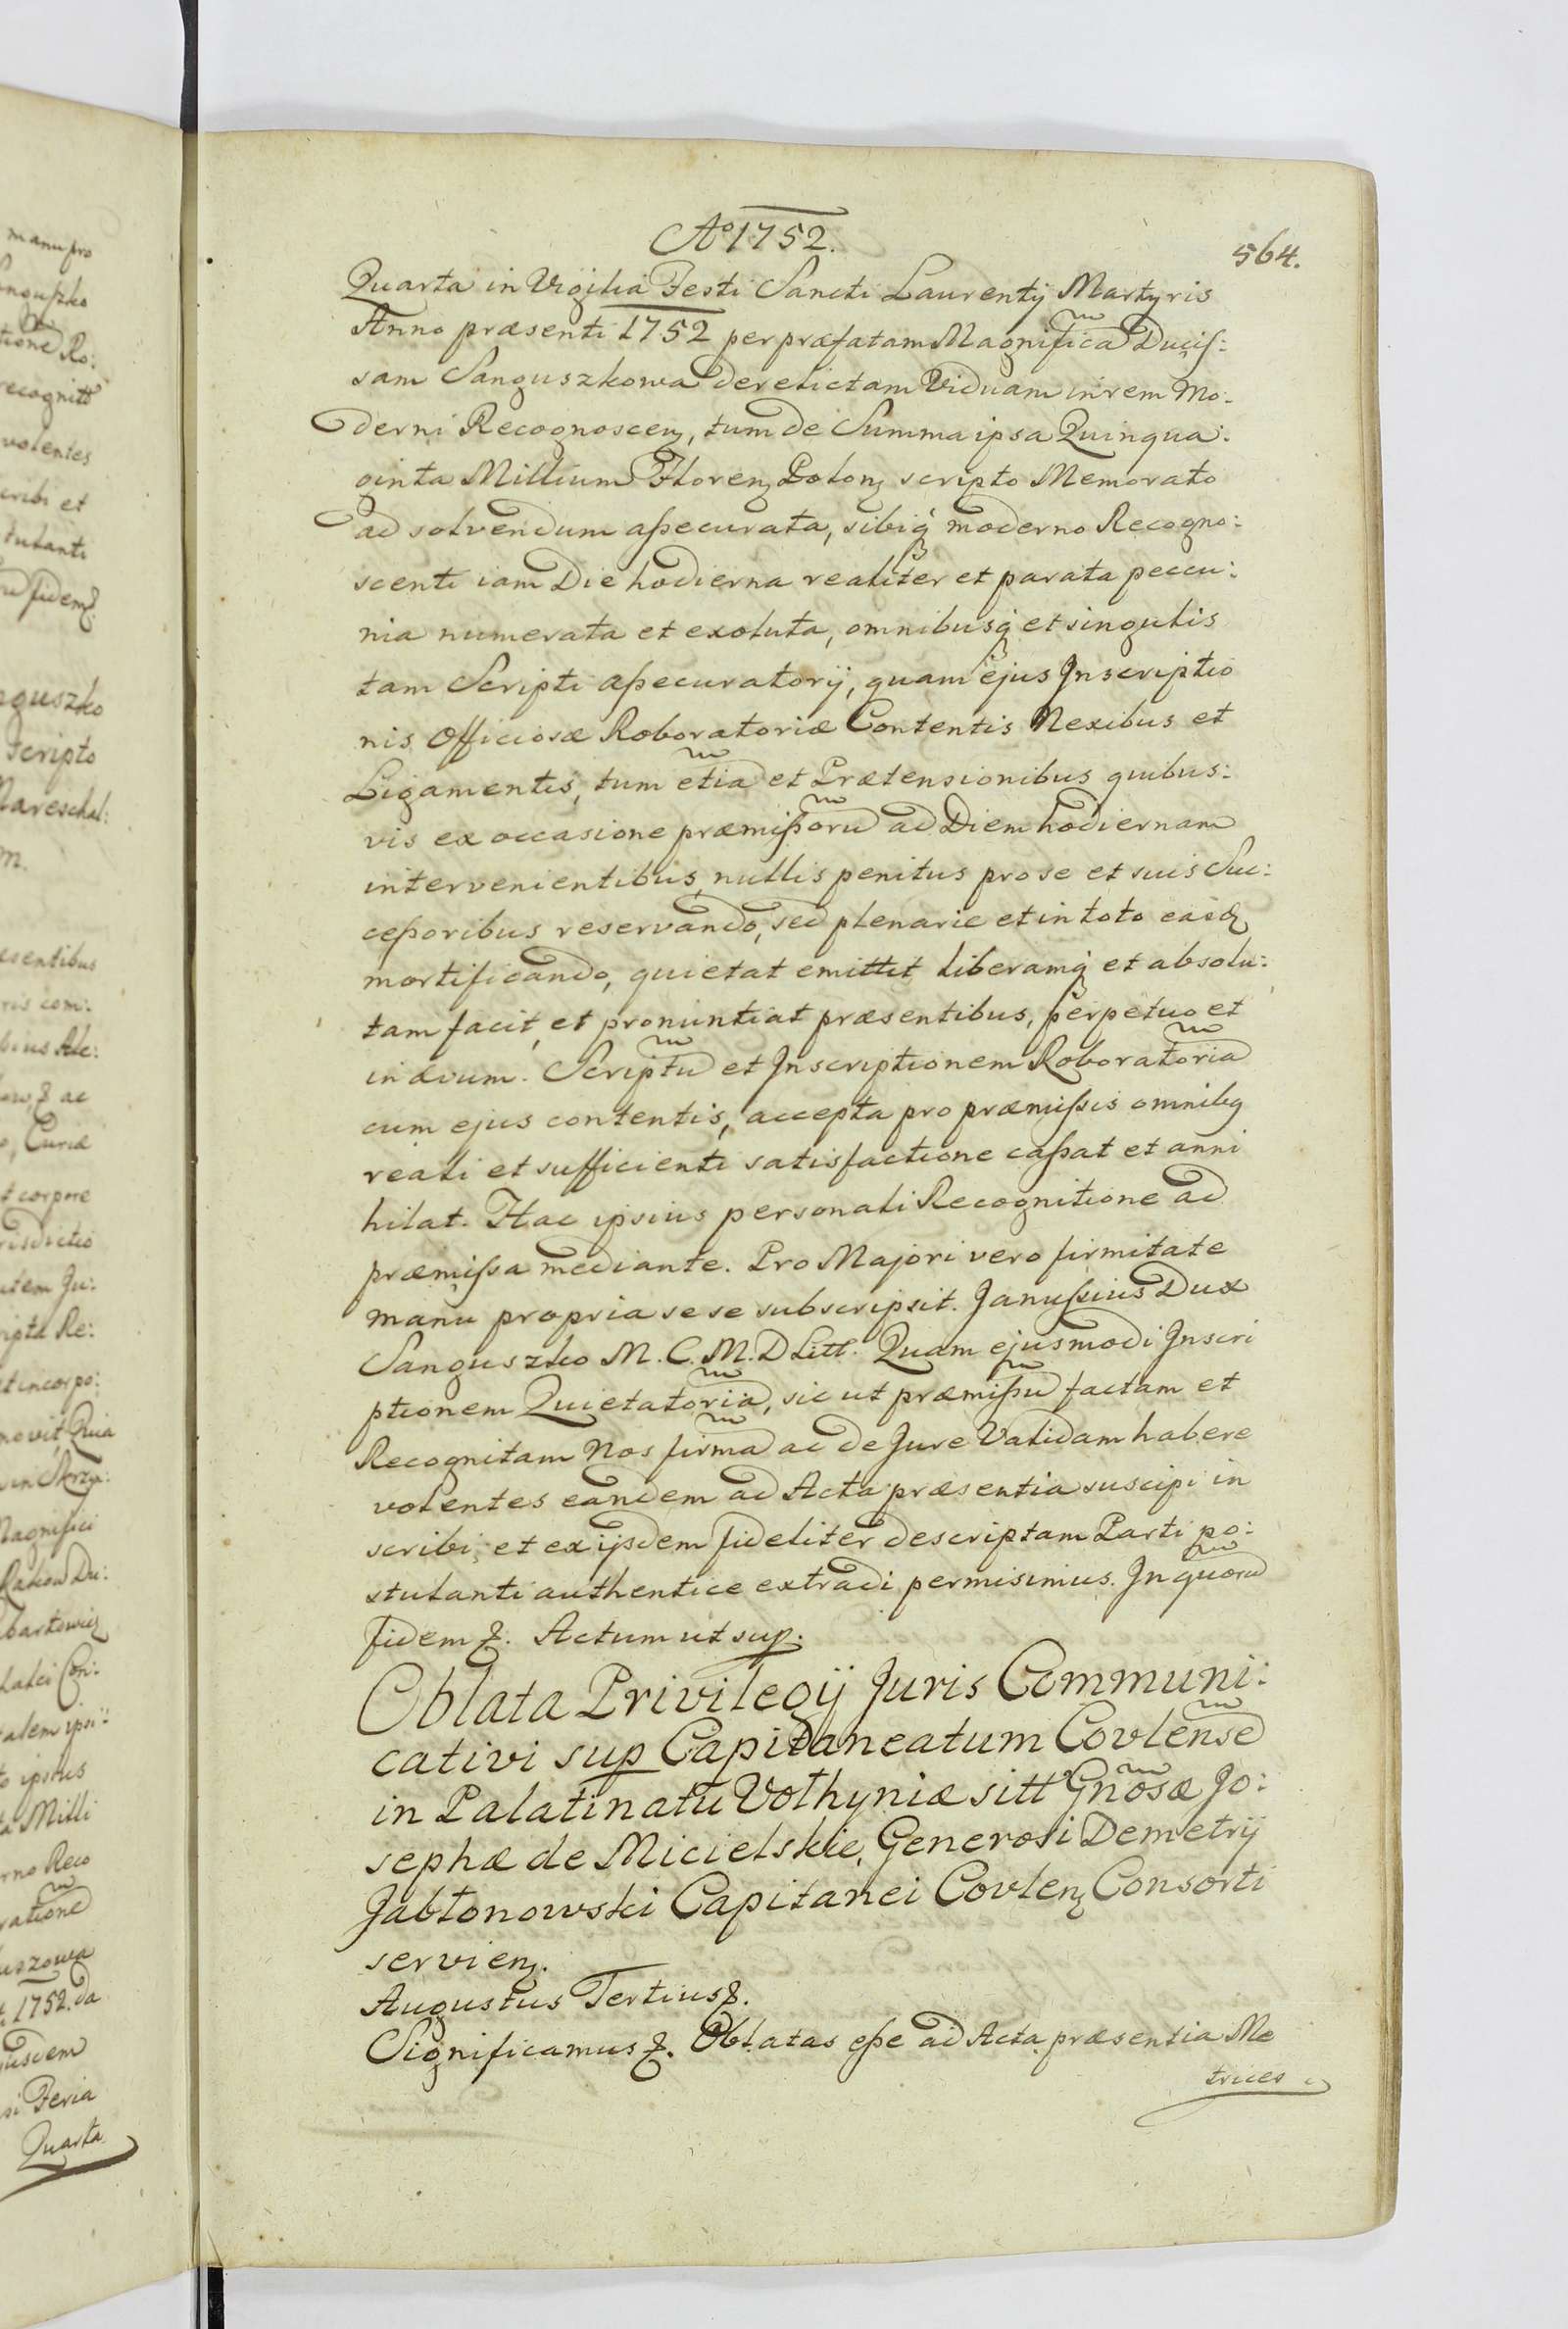 manu pro
nguszko
tione Ro:
recognitt
volentes
cribi et
tulanti
fidem
nguszko
scripto
Mareschal:
m.
esentibus
ris com:
bius Ale:
ac
Curiæ
t corpore
risdictio
utem Ju:
ripta Re:
t incorpo:
novit Quia
in Skrzy:
Magnifici
Ration Du:
bartowicz
latei Con:
talem ipsi:
to ipsius
ta Milli
rno Reco
ratione
uszowa
1752. da
jusdem
si Feria
Quarta
Aº 1752.
564.
Quarta in Vigilia Festi Sancti Laurentij Martyris
Anno præsenti 1752 per præfatam Magnificã Ducis:
sam Sanguszkowa derelictam Viduam in rem Mo:
derni Recognoscenꝫ, tum de Summa ipsa Quinqua:
ginta Millium Florenꝫ Polonꝫ scripto Memorato
ad solvendum aßecurata, sibiq́ moderno Recogno:
scenti iam Die hodierna realiter et parata peccu:
nia numerata et exoluta, omnibusq́ et singulis
tam Scripti aßecuratorij, quam ejus Inscriptio
nis Officiosæ Roboratoriæ Contentis Nexibus et
Ligamentis, tum etiã et Prætensionibus quibus:
vis ex occasione præmißorũ ad Diem hodiernam
intervenientibus, nullis penitus pro se et suis Suc:
ceßoribus reservando, sed plenarie et in toto easdꝫ
mortificando, quietat emittit liberamq́ et absolu:
tam facit, et pronuntiat præsentibus, perpetuo et
in ævum. Scriptũ et Inscriptionem Roboratoriã
cum ejus contentis, accepta pro præmißis omnibꝫ
reali et sufficienti satisfactione caßat et anni
hilat. Hac ipsius personali Recognitione ad
præmißa mediante. Pro Majori vero firmitate
manu propria se se subscripsit. Janußius Dux
Sanguszko M. C. M. D Litt. Quam ejusmodi Inscri
ptionem Quietatoriã, sic ut præmißũ factam et
Recognitam Nos firmã ac de Jure Validam habere
volentes eandem ad Acta præsentia suscipi in
scribi, et ex ijsdem fideliter descriptam Parti po:
stulanti authentice extradi permisimus. In quorũ
fidem &. Actum ut sup.
Oblata Privilegij Juris Communi:
cativi sup Capitaneatum Covlensẽ
in Palatinatu Volhyniæ sitt Gñosæ Jo:
sephæ de Micielskie, Generosi Demetrij
Jabłonowski Capitanei Covlenꝫ Consorti
servienꝫ.
Augustus Tertius &.
Significamus &. Oblatas eße ad Acta præsentia Me
trices